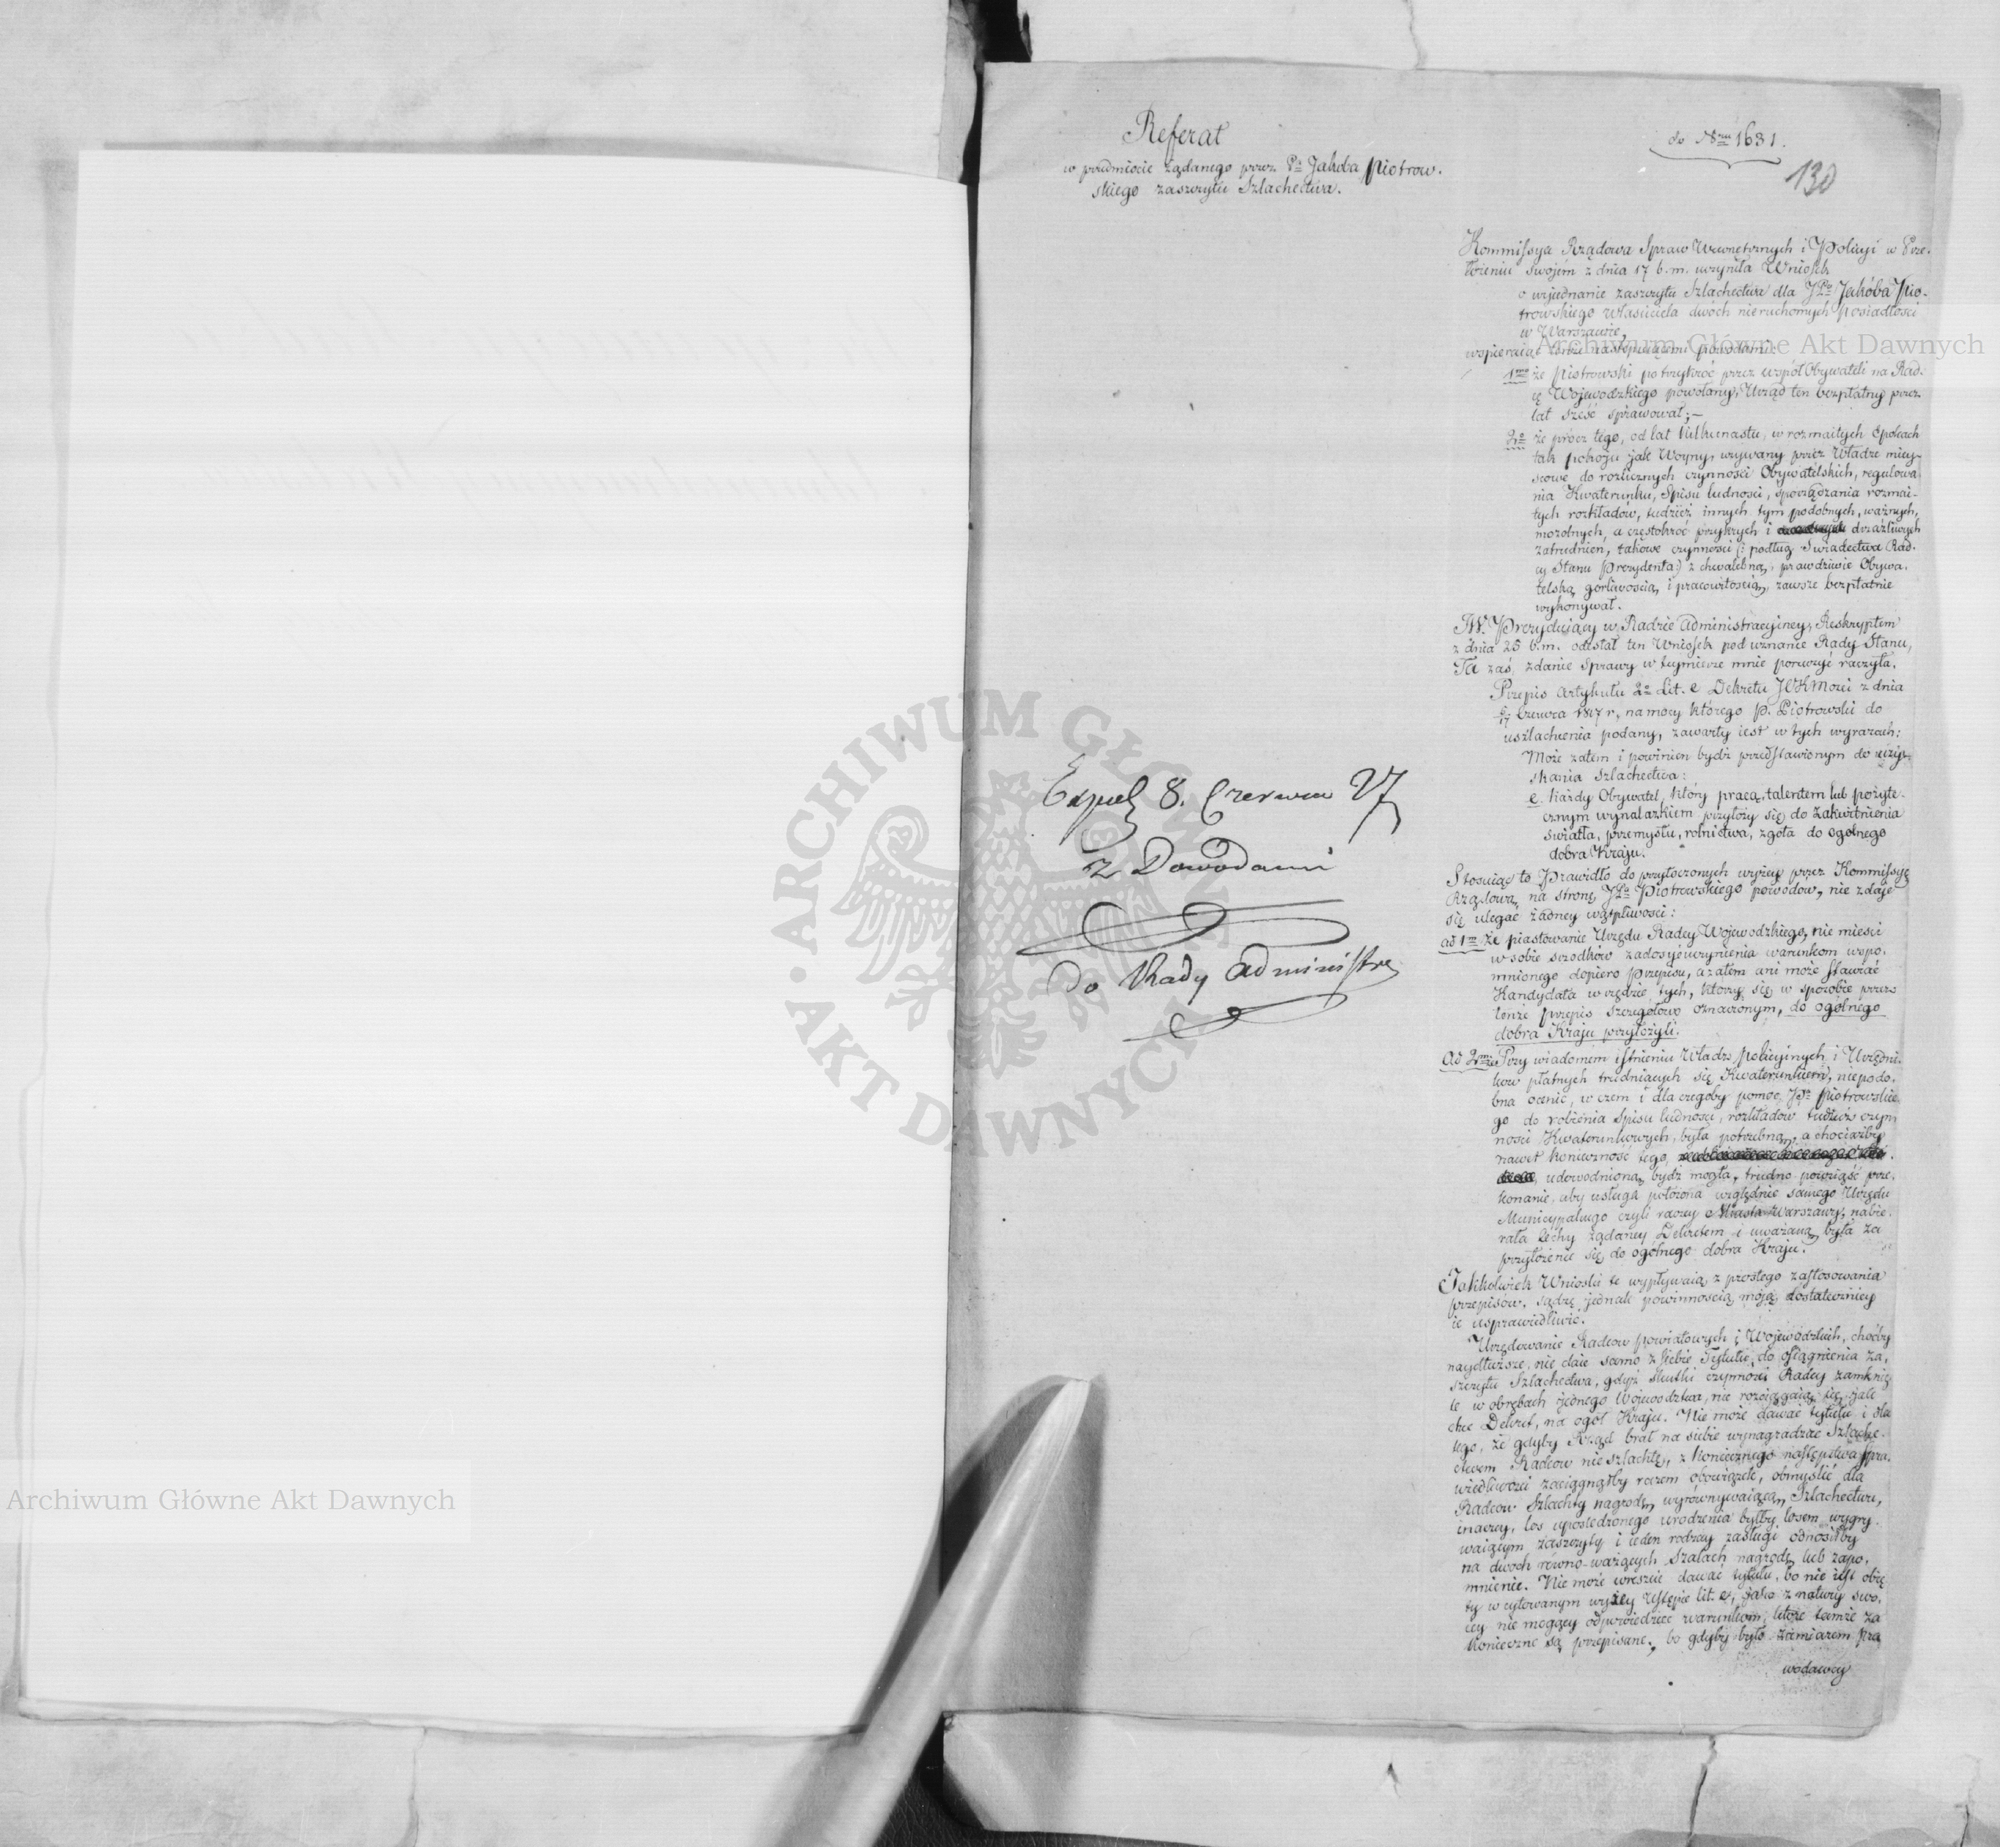 Referat
w przedmiocie żądanego przez Pa Jakóba Piotrow-
skiego zaszczytu Szlachectwa.
do Nru 1631.
130
Kommissya Rządowa Spraw Wewnętrznych i Policyi w Prze-
łożeniu swojém z dnia 17 b.m. uczyniła Wniosek
o wyjednanie zaszczytu Szlachectwa dla JPa Jakóba Pio-
trowskiego Właściciela dwóch nieruchomych posiadłości
w Warszawie,
wspieraiąc następuiącemi powodami:
1mo że Piotrowski po trzykroć przez współ Obywateli na Rad-
cę Wojewodzkiego powołany, Urząd ten bezpłatny przez
lat sześć sprawował; —
2o że prócz tego, od lat kilkunastu, w rozmaitych Epokach
tak pokoju jak Woyny, wzywany przez Władze miey-
scowe do rozlicznych czynności Obywatelskich, regulowa-
nia Kwaterunku, Spisu ludności, sporządzania rozmai-
tych rozkładów, tudzież innych tym podobnych, ważnych,
mozolnych, a częstokroć przykrych i drażliwych
zatrudnien, takowe czynności /: podług Swiadectwa Rad-
cy Stanu Prezydenta:/ z chwalebną, prawdziwie Obywa-
telską gorliwością i pracowitością, zawsze bezpłatnie
wykonywał.
JW. Prezyduiący w Radzie Administracyiney, Reskryptem
z dnia 25 b.m. odesłał ten Wniosek pod uznanie Rady Stanu,
Ta zaś, zdanie Sprawy w teymierze mnie poruczyć raczyła.
Przepis Artykułu 2o Lit. e Dekretu JCKMości z dnia
Czerwca 1817 r, na mocy którego P. Piotrowski do
uszlachcenia podany, zawarty iest w tych wyrazach:
Może zatem i powinien bydź przedstawionym do uzy-
skania Szlachectwa:
e. każdy Obywatel, który pracą, talentem lub pożyte-
cznym wynalazkiem przyłoży się do zakwitnienia
światła, przemysłu, rolnictwa, zgoła do ogólnego
dobra Kraju.
Stosuiąc to Prawidło do przytoczonych wyżey przez Kommissyę
Rządową na stronę JPa Piotrowskiego powodów, nie zdaje
się ulegać żadney wątpliwości:
ad 1m że piastowanie Urzędu Radcy Wojewodzkiego, nie mieści
w sobie srodków zadosyćuczynienia warunkom wspo-
mnionego dopiero Przepisu, a zatem ani może stawiać
Kandydata w rzędzie tych, którzy się w sposobie przez
tenże przepis szczegółowo oznaczonym, do ogólnego
dobra Kraju przyłożyli.
Ad 2m że Przy wiadomem istnieniu Władz Policyjnych i Urzędni-
ków płatnych trudniących się Kwaterunkiem, niepodo-
bna ocenić, w czem i dla czegoby pomoc JPa Piotrowskie-
go do robienia Spisu ludności, rozkładów tudzież czyn-
ności Kwaterunkowych, była potrzebną, a chociażby
nawet konieczność tego
udowodnioną bydź mogła, trudno powziąść prze-
konanie, aby usługa położona względnie samego Urzędu
Municypalnego czyli raczey Miasta Warszawy, nabie-
rała cechy żądaney Dekretem i uważaną była za
przyłożenie się do ogólnego dobra Kraju.
Jakkolwiek Wnioski te wypływaią z prostego zastosowania
przepisów, sądzę jednak powinnością moją dostateczniey
ie usprawiedliwić.
Urzędowanie Radców Powiatowych i Wojewodzkich, choćby
naydłuższe, nie daie samo z siebie Tytułu do osiągnienia za-
szczytu Szlachectwa, gdyż skutki czynności Radcy zamknię-
te w obrębach jednego Województwa, nie rozciągaią się, jak
chce Dekret, na ogół Kraju. Nie może dawać tytułu i dla
tego, że gdyby Rząd brał na siebie wynagradzać Szlache-
ctwem Radców nieszlachtę, z koniecznego następstwa Spra-
wiedliwości zaciągnąłby razem obowiązek, obmyślić dla
Radców Szlachty nagrodę, wyrównywaiącą Szlachectwu,
inaczey, los upośledzonego urodzenia byłby losem wygry-
waiącym zaszczyty i ieden rodzay zasługi odnosiłby
na dwóch równo-ważących szalach nagrodę lub zapo-
mnienie. Nie może wreszcie dawać tytułu, bo nie iest obię-
ty w cytowanym wyżey Ustępie lit. e, jako z natury swo-
iey nie mogący odpowiedzieć warunkom, które tamże za
konieczne są przepisane, bo gdyby było zamiarem pra-
wodawcy
Exped 8. Czerwca 27
z Dowodami
do Rady Administra
Archiwum Główne Akt Dawnych
Archiwum Główne Akt Dawnych
ARCHIWUM GŁÓWNE
AKT DAWNYCH